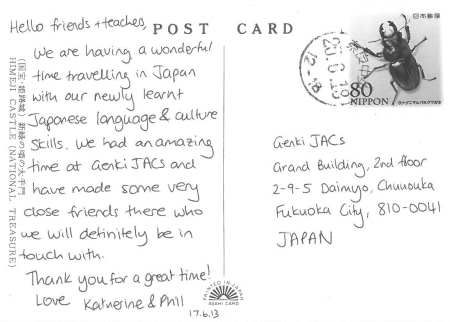 POST CARD
Hello friends + teachers,
We are having a wonderful
time travelling in Japan
with our newly learnt
Japanese language & culture
skills. We had an amazing
time at Genki JACs and
have made some very
close friends there who
we will definitely be in
touch with.
Thank you for a great time!
Love Katherine & Phil
17.6.13
HIMEJI CASTLE (NATIONAL TREASURE)
日本郵便
80
NIPPON
12-18
Genki JACs
Grand Building, 2nd floor
2-9-5 Daimyo, Chuuouka
Fukuoka City, 810-0041
JAPAN
PRINTED IN JAPAN
ASAHI CARD